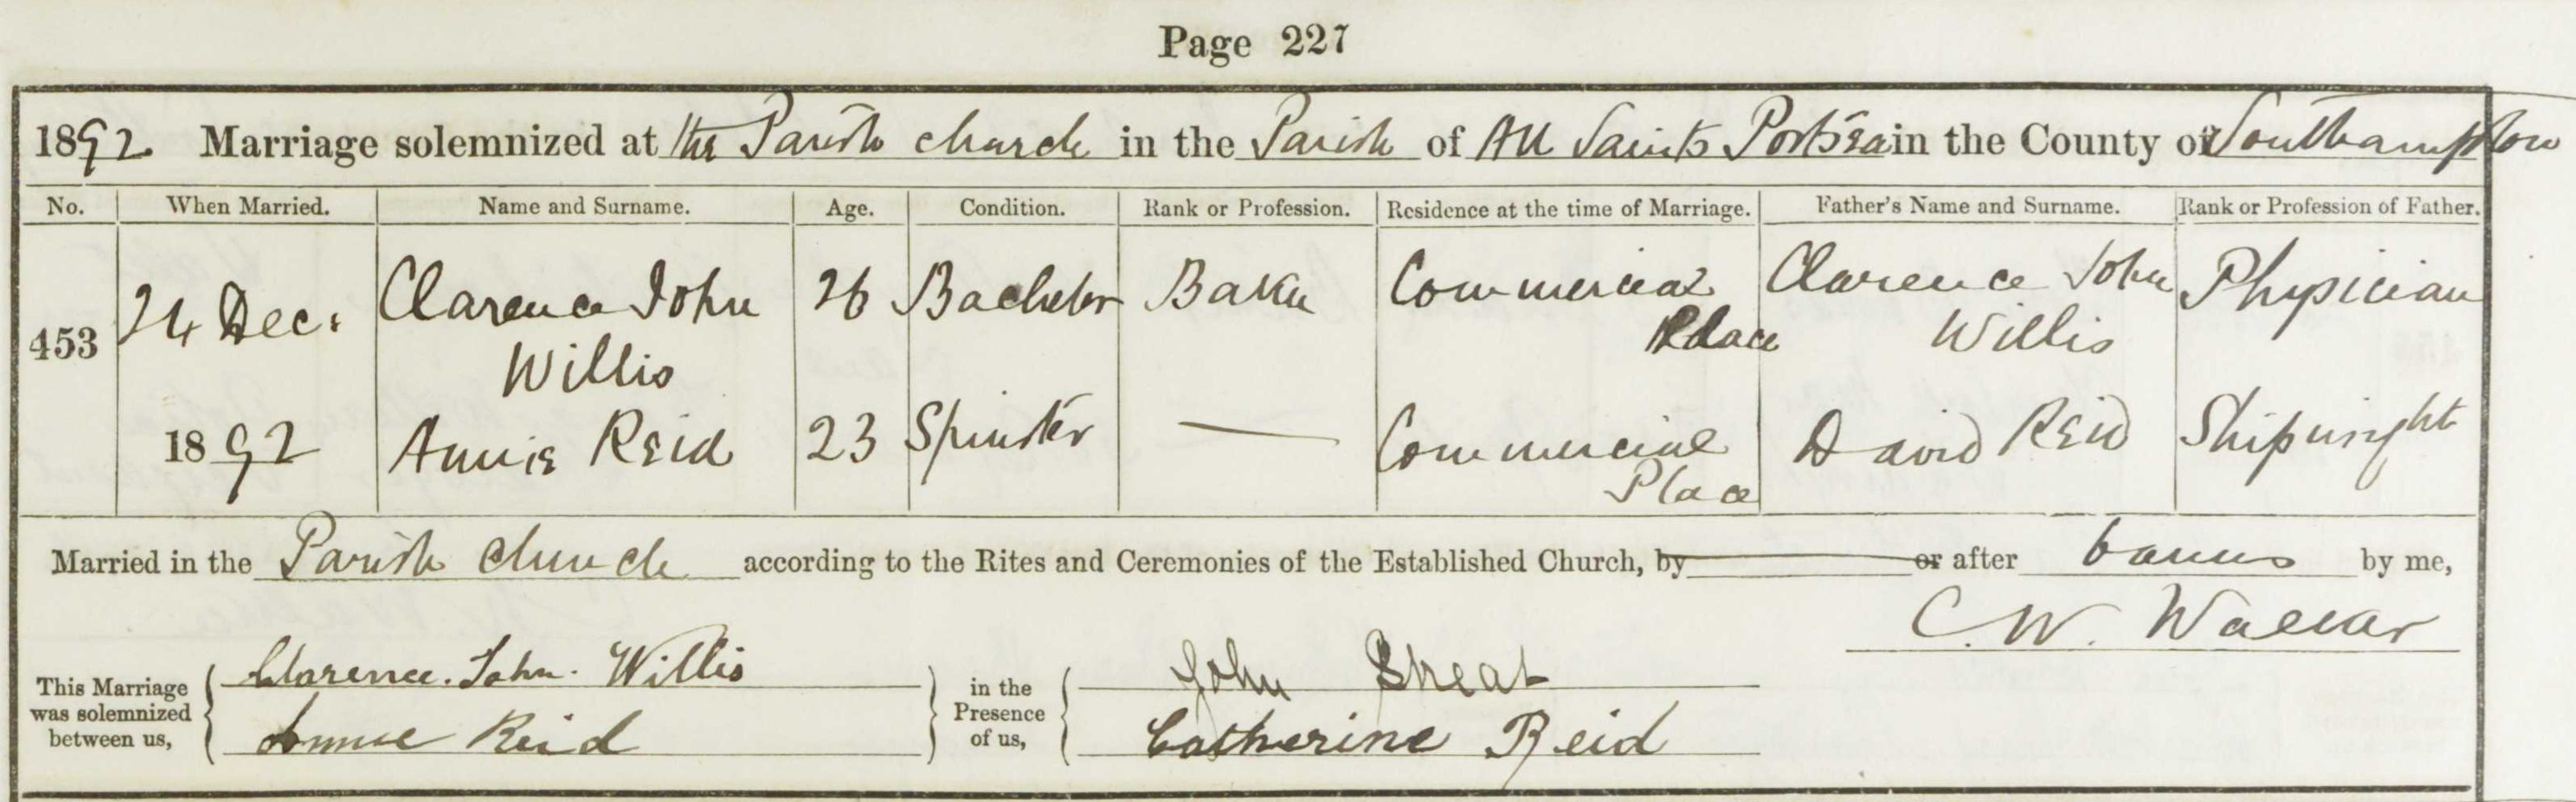 Page 227
1892 Marriage solemnized at the Parish Church in the Parish of All Saints Portsea in the County of Southampton
No. When Married. Name and Surname. Age. Condition. Rank or Profession. Residence at the time of Marriage. Father's Name and Surname. Rank or Profession of Father.
453 24 Dec: Clarence John 26 Bachelor Baker Commercial Clarence John Physician
Willis Place Willis
1892 Annie Reid 23 Spinster — Commercial David Reid Shipwright
Place
Married in the Parish Church according to the Rites and Ceremonies of the Established Church, by or after banns by me,
C. W. Wallar
This Marriage was solemnized between us, Clarence. John. Willis in the Presence of us, John Sheat
Annie Reid Catherine Reid